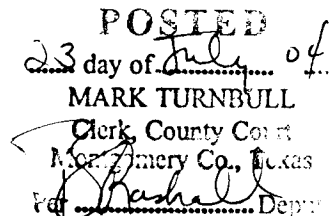 POSTED
23 day of July 04
MARK TURNBULL
Clerk, County Court
Montgomery Co., Texas
Per Deputy